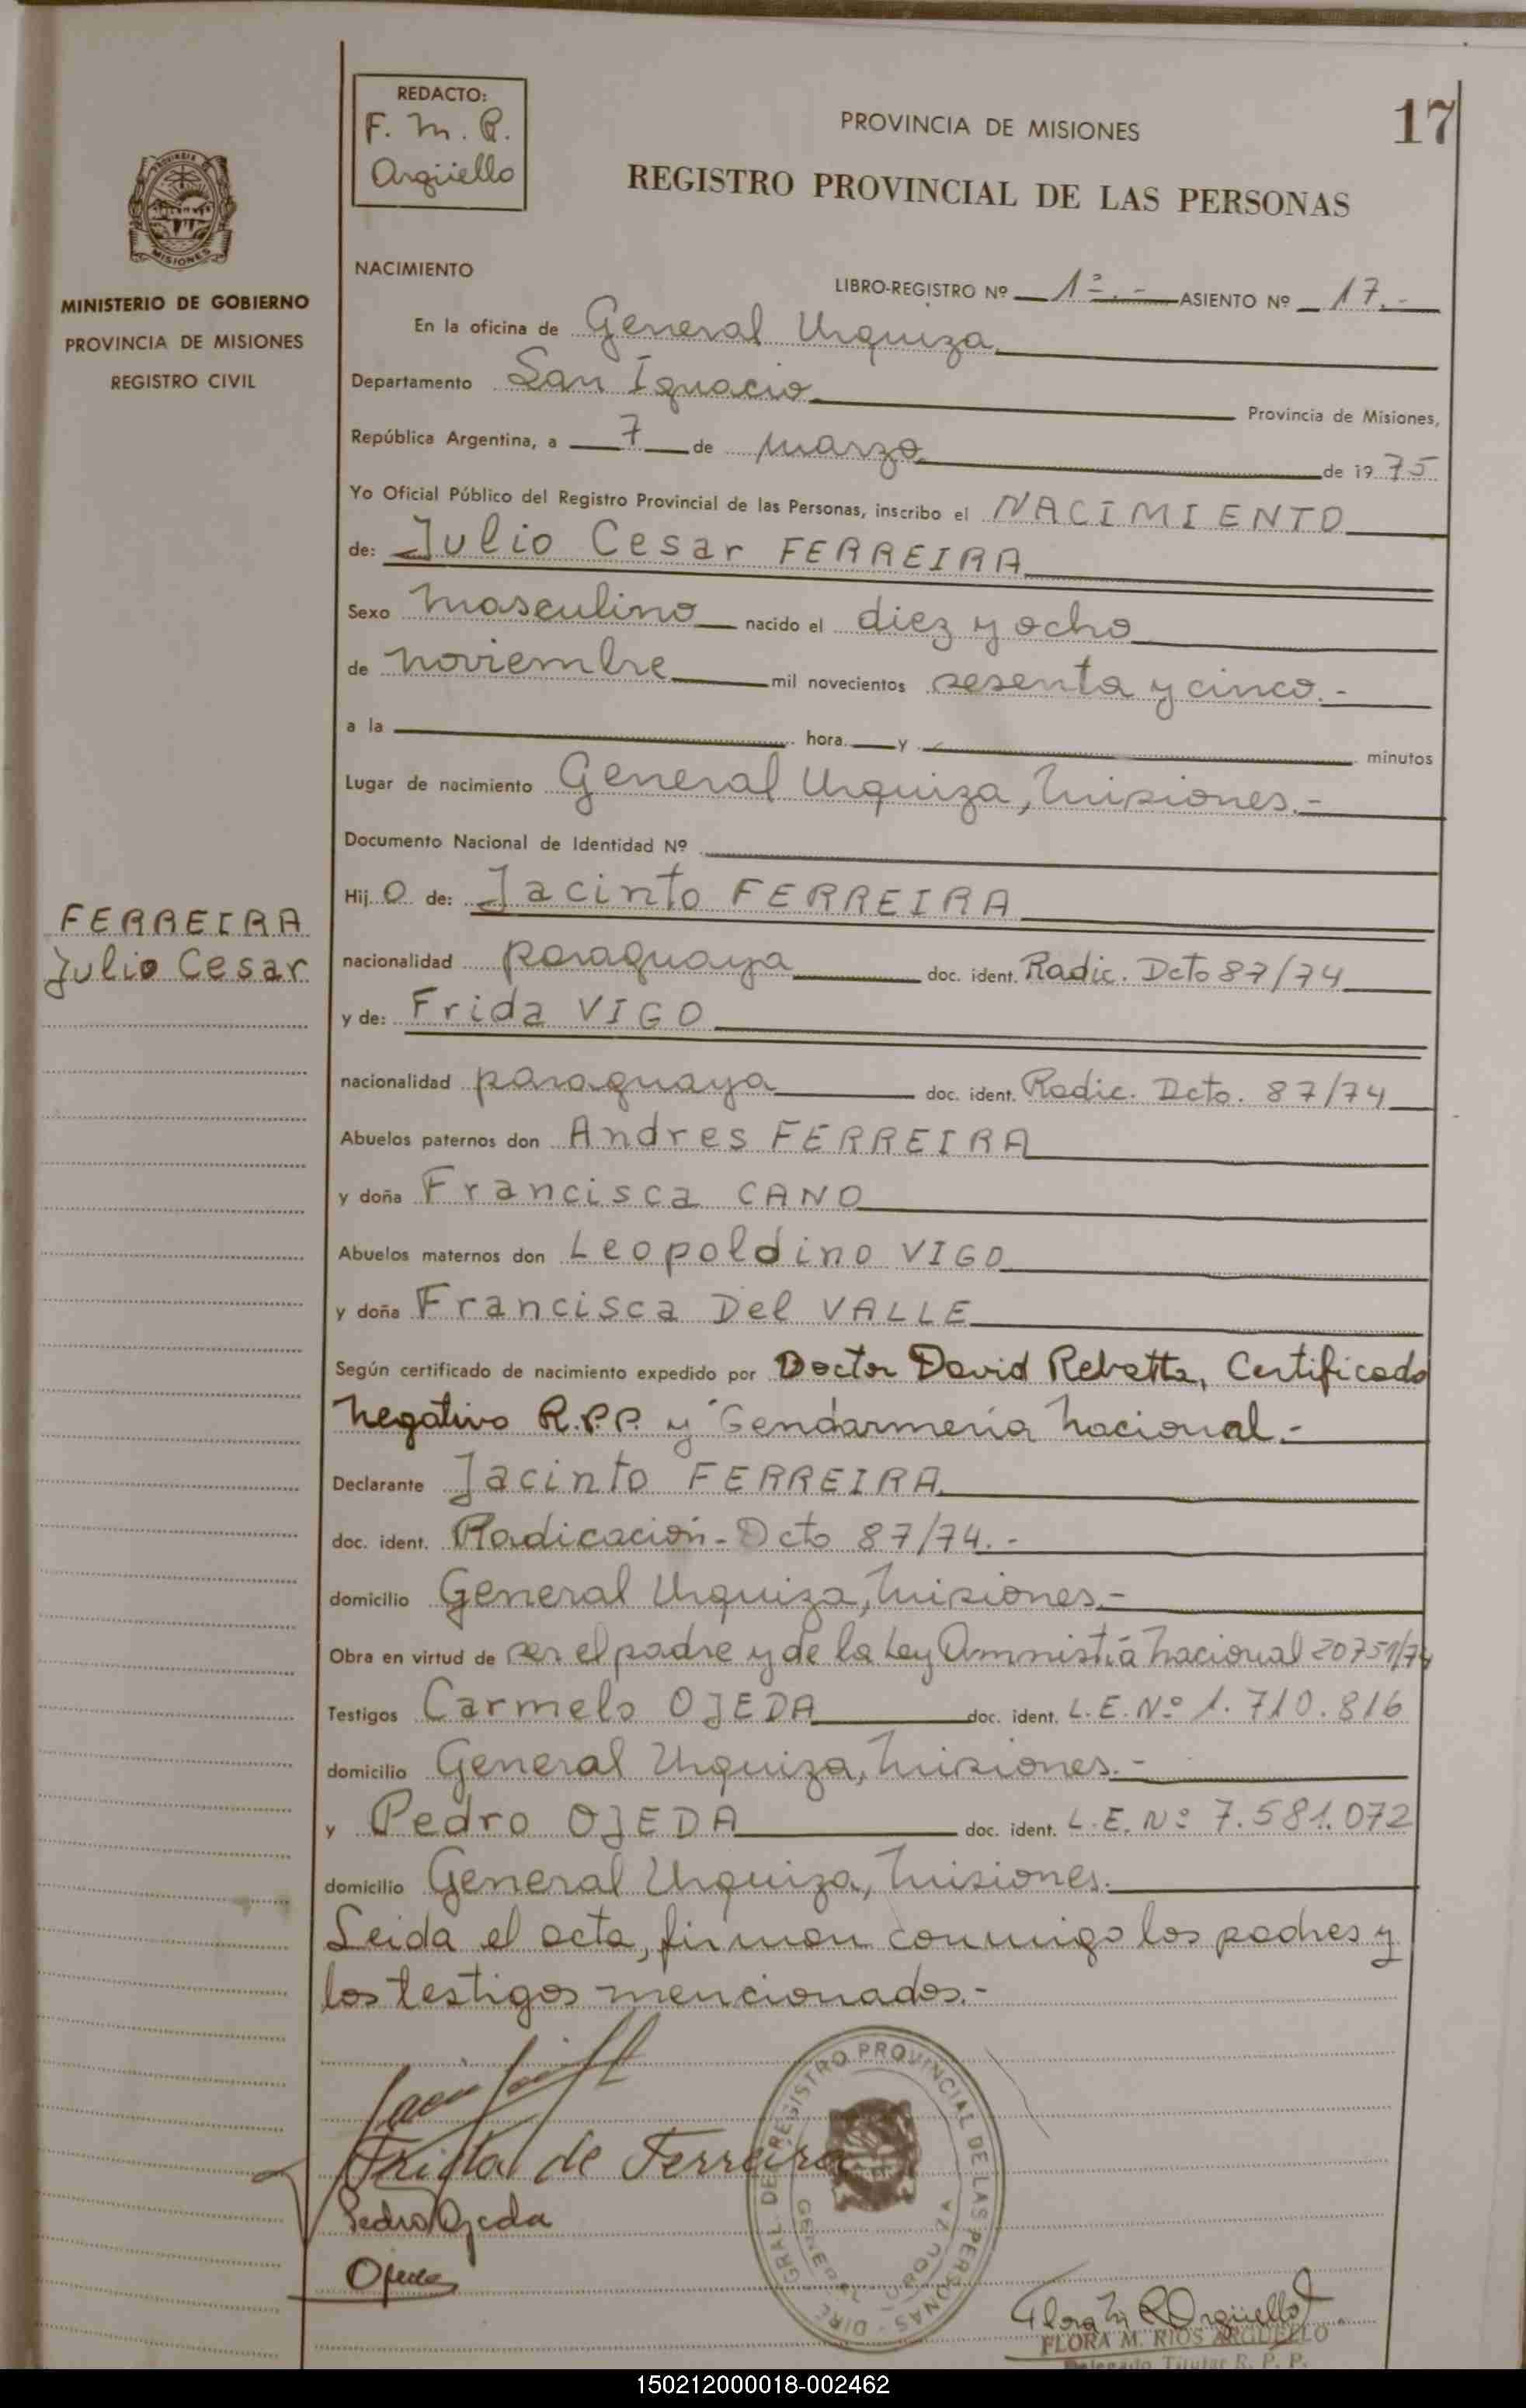 REDACTO:
F. M. R.
Argüello
17
PROVINCIA DE MISIONES
REGISTRO PROVINCIAL DE LAS PERSONAS
MISIONES
MINISTERIO DE GOBIERNO
PROVINCIA DE MISIONES
REGISTRO CIVIL
NACIMIENTO
LIBRO-REGISTRO Nº 1º.- ASIENTO Nº 17.-
En la oficina de General Urquiza
Departamento San Ignacio Provincia de Misiones,
República Argentina, a 7 de marzo de 1975
Yo Oficial Público del Registro Provincial de las Personas, inscribo el NACIMIENTO
de: Julio Cesar FERREIRA
Sexo masculino nacido el diez y ocho
de noviembre mil novecientos sesenta y cinco.-
a la hora y minutos
Lugar de nacimiento General Urquiza, Misiones.-
Documento Nacional de Identidad Nº
FERREIRA
Julio Cesar
Hijo de: Jacinto FERREIRA
nacionalidad paraguaya doc. ident. Radic. Dcto 87/74
y de: Frida VIGO
nacionalidad paraguaya doc. ident. Radic. Dcto. 87/74
Abuelos paternos don Andres FERREIRA
y doña Francisca CANO
Abuelos maternos don Leopoldino VIGO
y doña Francisca Del VALLE
Según certificado de nacimiento expedido por Doctor David Rebatta, Certificado
negativo R.P.P. y Gendarmeria Nacional.-
Declarante Jacinto FERREIRA
doc. ident. Radicación-Dcto 87/74.-
domicilio General Urquiza, Misiones.-
Obra en virtud de ser el padre y de la Ley Amnistía Nacional 20751/74
Testigos Carmelo OJEDA doc. ident. L.E. Nº 1.710.816
domicilio General Urquiza, Misiones.-
y Pedro OJEDA doc. ident. L.E. Nº 7.581.072
domicilio General Urquiza, Misiones.
Leida el acta, firman conmigo los padres y
los testigos mencionados.-
Frida de Ferreira
Pedro Ojeda
Ojeda
DIRE. GRAL DE REGISTRO PROVINCIAL DE LAS PERSONAS
GENERAL URQUIZA
Flora M R Argüello
FLORA M. RIOS ARGUELLO
Delegado Titular R. P. P.
150212000018-002462